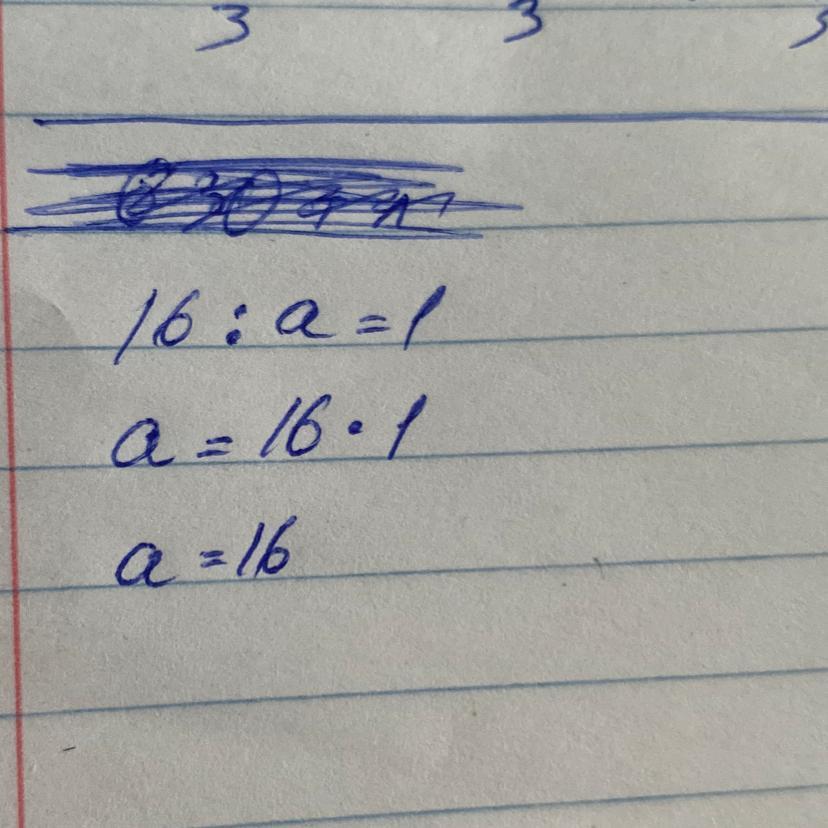 3 3
16 : a = 1
a = 16 · 1
a = 16